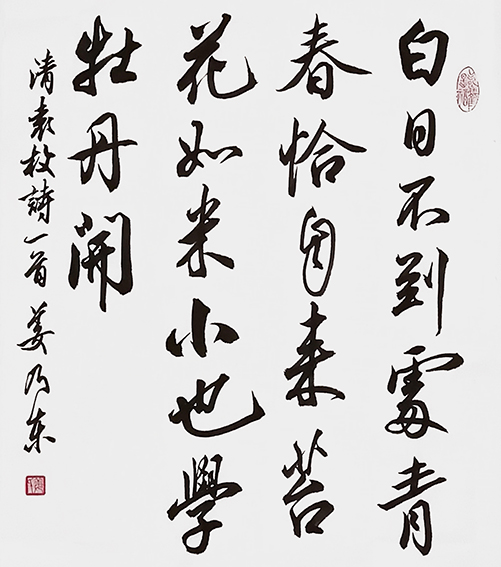 白日不到處青
春恰自來苔
花如米小也學
牡丹開
清袁枚詩一首姜乃東